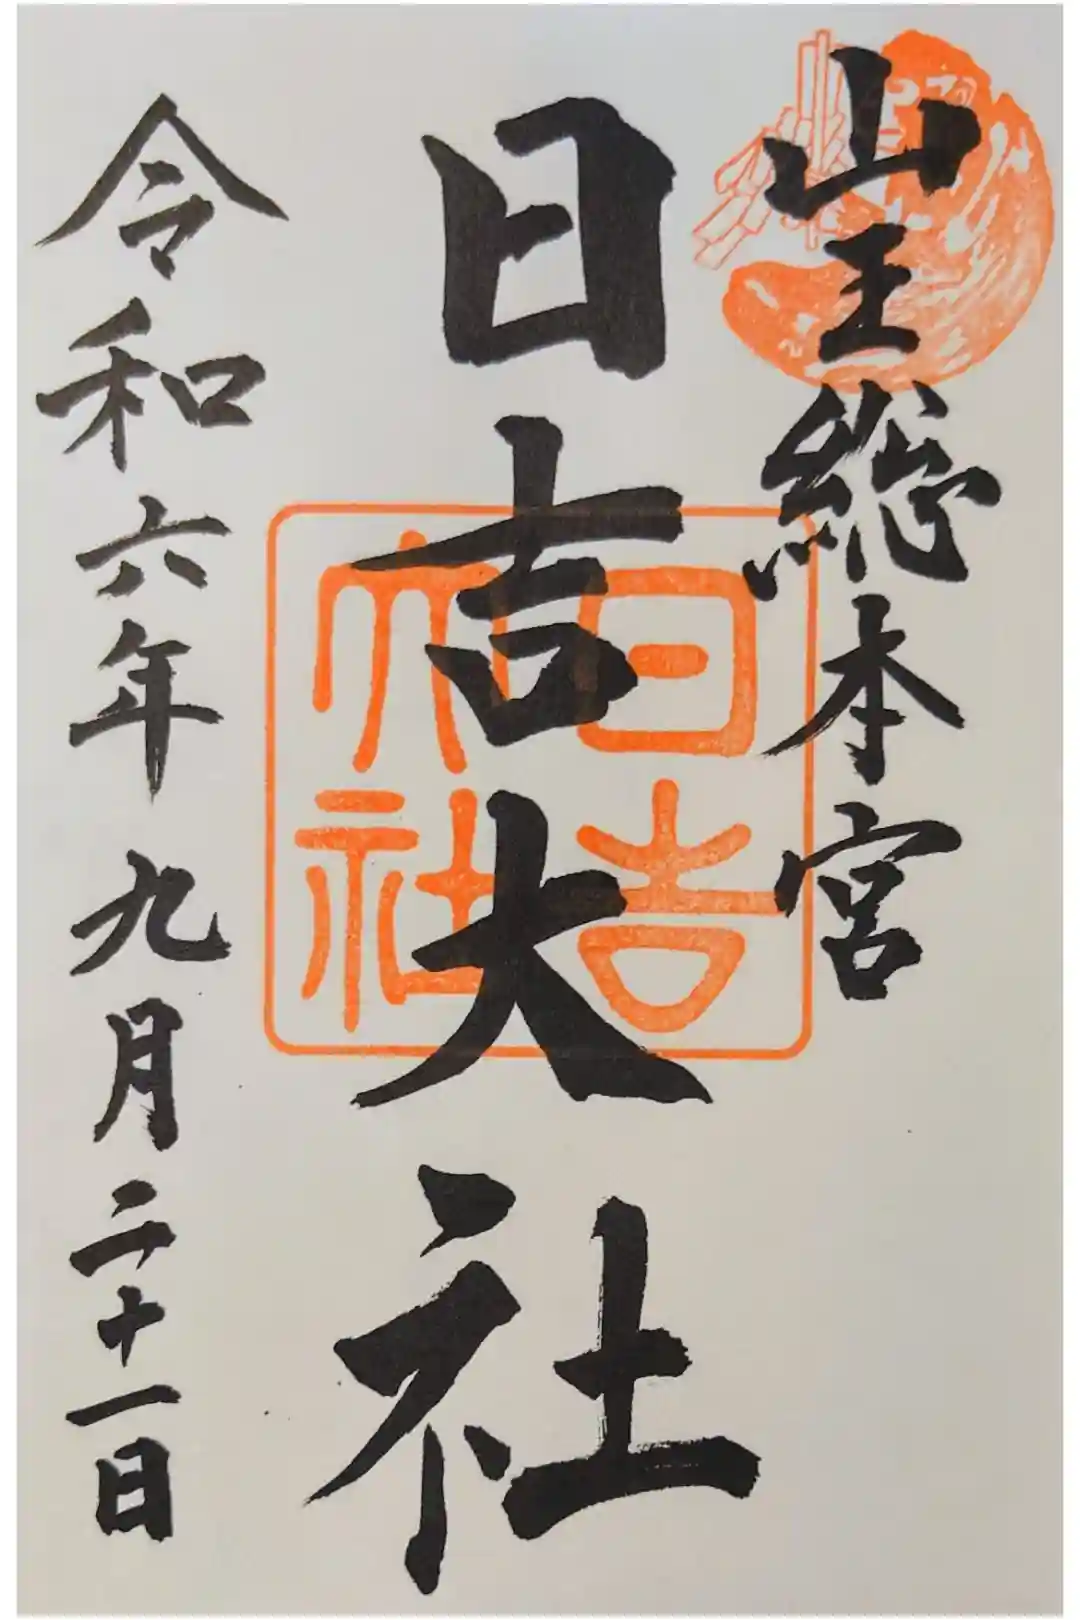 山王総本宮
日吉大社
日吉
大社
令和六年九月二十一日